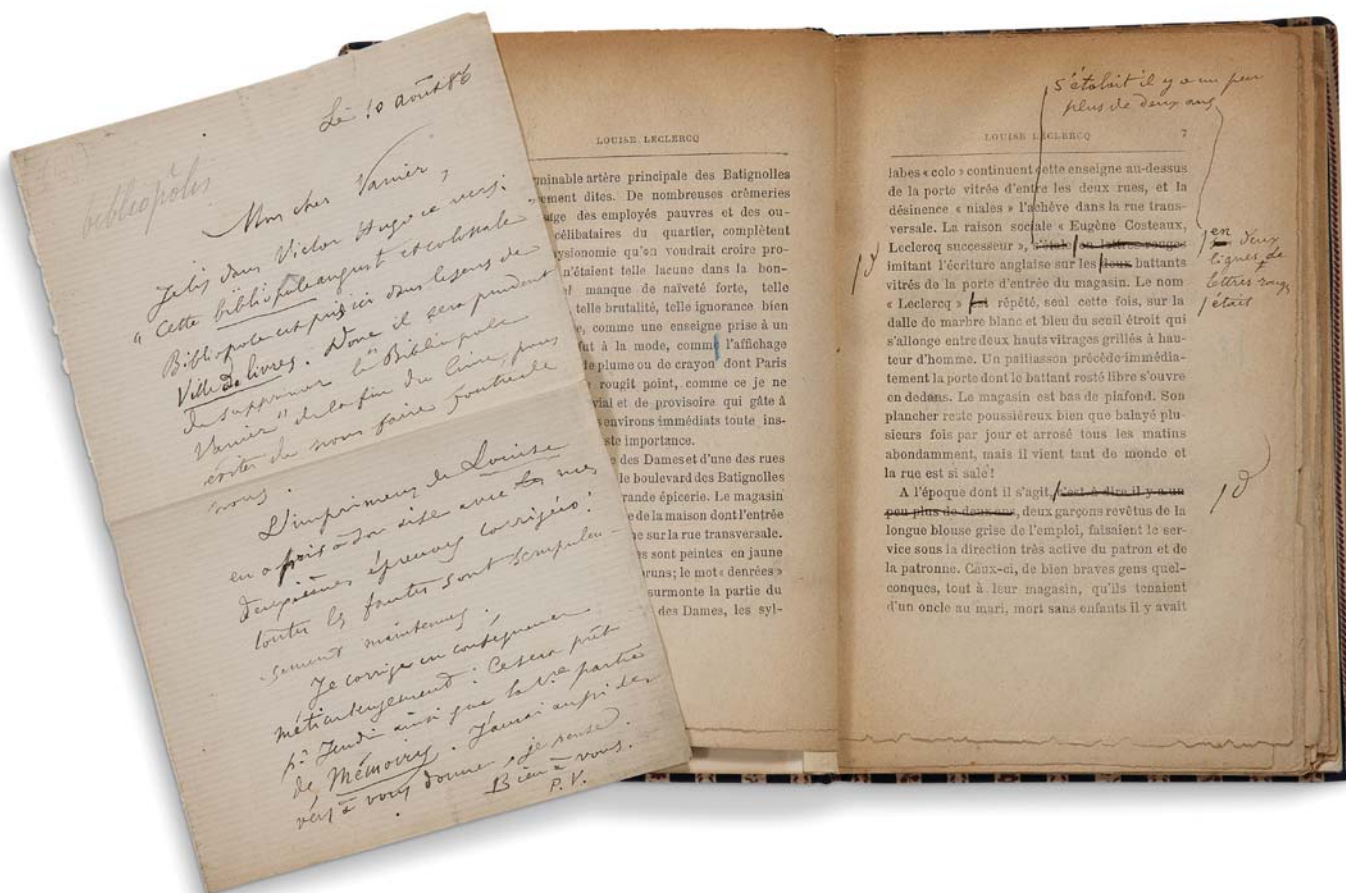 bibliopôlis
Le 10 août 86
Mon cher Vanier,
Je lis dans Victor Hugo ce vers :
"Cette bibliopole auguste et colossale"
Bibliopole est pris ici dans le sens de
Ville de livres. Donc il sera prudent
de supprimer le "Bibliopole
Vanier" de la fin du livre, pour
éviter de nous faire foutre de
nous.
L'imprimeur de Louise
en a pris à son aise avec les mes
épreuves corrigées !
toutes les fautes sont scrupuleu-
sement maintenues.
Je corrige en conséquence
méticuleusement : Ce sera prêt
pr Jeudi ainsi que la partie
de Mémoires. J'aurai aussi des
vers à vous donner, je pense.
Bien à vous.
P. V.
LOUISE LECLERCQ
minable artère principale des Batignolles
ement dites. De nombreuses crèmeries
age des employés pauvres et des ou-
célibataires du quartier, complètent
ysionomie qu'on voudrait croire pro-
n'étaient telle lacune dans la bon-
manque de naïveté forte, telle
telle brutalité, telle ignorance bien
e, comme une enseigne prise à un
ut à la mode, comme l'affichage
e plume ou de crayon dont Paris
rougit point, comme ce je ne
vial et de provisoire qui gâte à
environs immédiats toute ins-
ste importance.
e des Dames et d'une des rues
le boulevard des Batignolles
rande épicerie. Le magasin
e de la maison dont l'entrée
ne sur la rue transversale.
s sont peintes en jaune
runs; le mot « denrées »
surmonte la partie du
des Dames, les syl-
s'étalait il y a un peu
plus de deux ans
LOUISE LECLERCQ 7
labes « colo » continuent cette enseigne au-dessus
de la porte vitrée d'entre les deux rues, et la
désinence « niales » l'achève dans la rue trans-
versale. La raison sociale « Eugène Costeaux,
Leclercq successeur », s'étale en lettres rouges
imitant l'écriture anglaise sur les deux battants
vitrés de la porte d'entrée du magasin. Le nom
« Leclercq » est répété, seul cette fois, sur la
dalle de marbre blanc et bleu du seuil étroit qui
s'allonge entre deux hauts vitrages grillés à hau-
teur d'homme. Un paillasson précède immédia-
tement la porte dont le battant resté libre s'ouvre
en dedans. Le magasin est bas de plafond. Son
plancher reste poussiéreux bien que balayé plu-
sieurs fois par jour et arrosé tous les matins
abondamment, mais il vient tant de monde et
la rue est si sale !
A l'époque dont il s'agit, c'est-à-dire il y a un
peu plus de deux ans, deux garçons revêtus de la
longue blouse grise de l'emploi, faisaient le ser-
vice sous la direction très active du patron et de
la patronne. Ceux-ci, de bien braves gens quel-
conques, tout à leur magasin, qu'ils tenaient
d'un oncle au mari, mort sans enfants il y avait
en deux
lignes de
lettres rouges
était